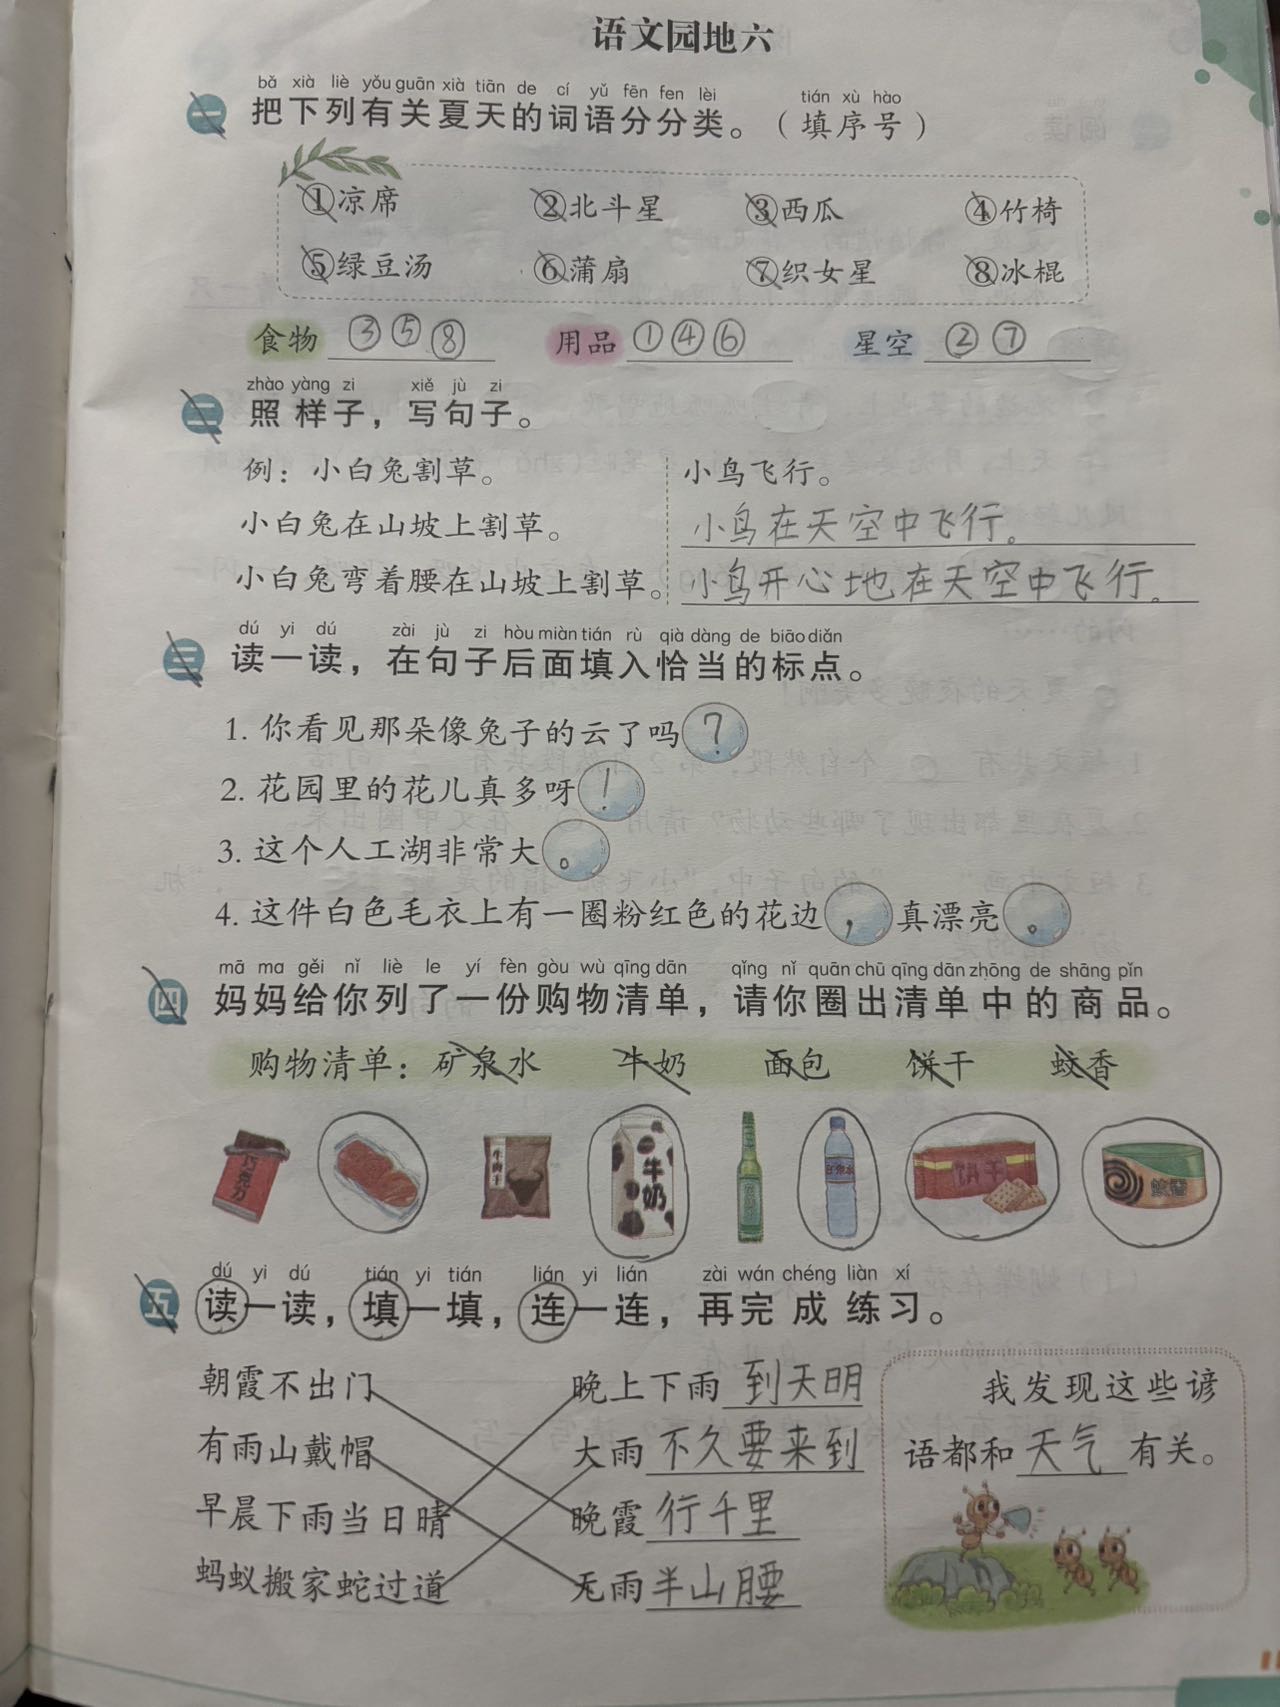 语文园地六
bǎ xià liè yǒu guān xià tiān de cí yǔ fēn fen lèi tián xù hào
一 把下列有关夏天的词语分分类。（填序号）
①凉席 ②北斗星 ③西瓜 ④竹椅
⑤绿豆汤 ⑥蒲扇 ⑦织女星 ⑧冰棍
食物 ③⑤⑧ 用品 ①④⑥ 星空 ②⑦
zhào yàng zi xiě jù zi
二 照样子，写句子。
例：小白兔割草。 小鸟飞行。
小白兔在山坡上割草。 小鸟在天空中飞行。
小白兔弯着腰在山坡上割草。 小鸟开心地在天空中飞行。
dú yi dú zài jù zi hòu miàn tián rù qià dàng de biāo diǎn
三 读一读，在句子后面填入恰当的标点。
1. 你看见那朵像兔子的云了吗？
2. 花园里的花儿真多呀！
3. 这个人工湖非常大。
4. 这件白色毛衣上有一圈粉红色的花边，真漂亮。
mā ma gěi nǐ liè le yí fèn gòu wù qīng dān qǐng nǐ quān chū qīng dān zhōng de shāng pǐn
四 妈妈给你列了一份购物清单，请你圈出清单中的商品。
购物清单：矿泉水 牛奶 面包 饼干 蚊香
巧克力 牛肉干 牛奶 饼干 蚊香
dú yi dú tián yi tián lián yi lián zài wán chéng liàn xí
五 读一读，填一填，连一连，再完成练习。
朝霞不出门 晚上下雨 到天明
有雨山戴帽 大雨 不久要来到
早晨下雨当日晴 晚霞 行千里
蚂蚁搬家蛇过道 无雨 半山腰
我发现这些谚
语都和 天气 有关。